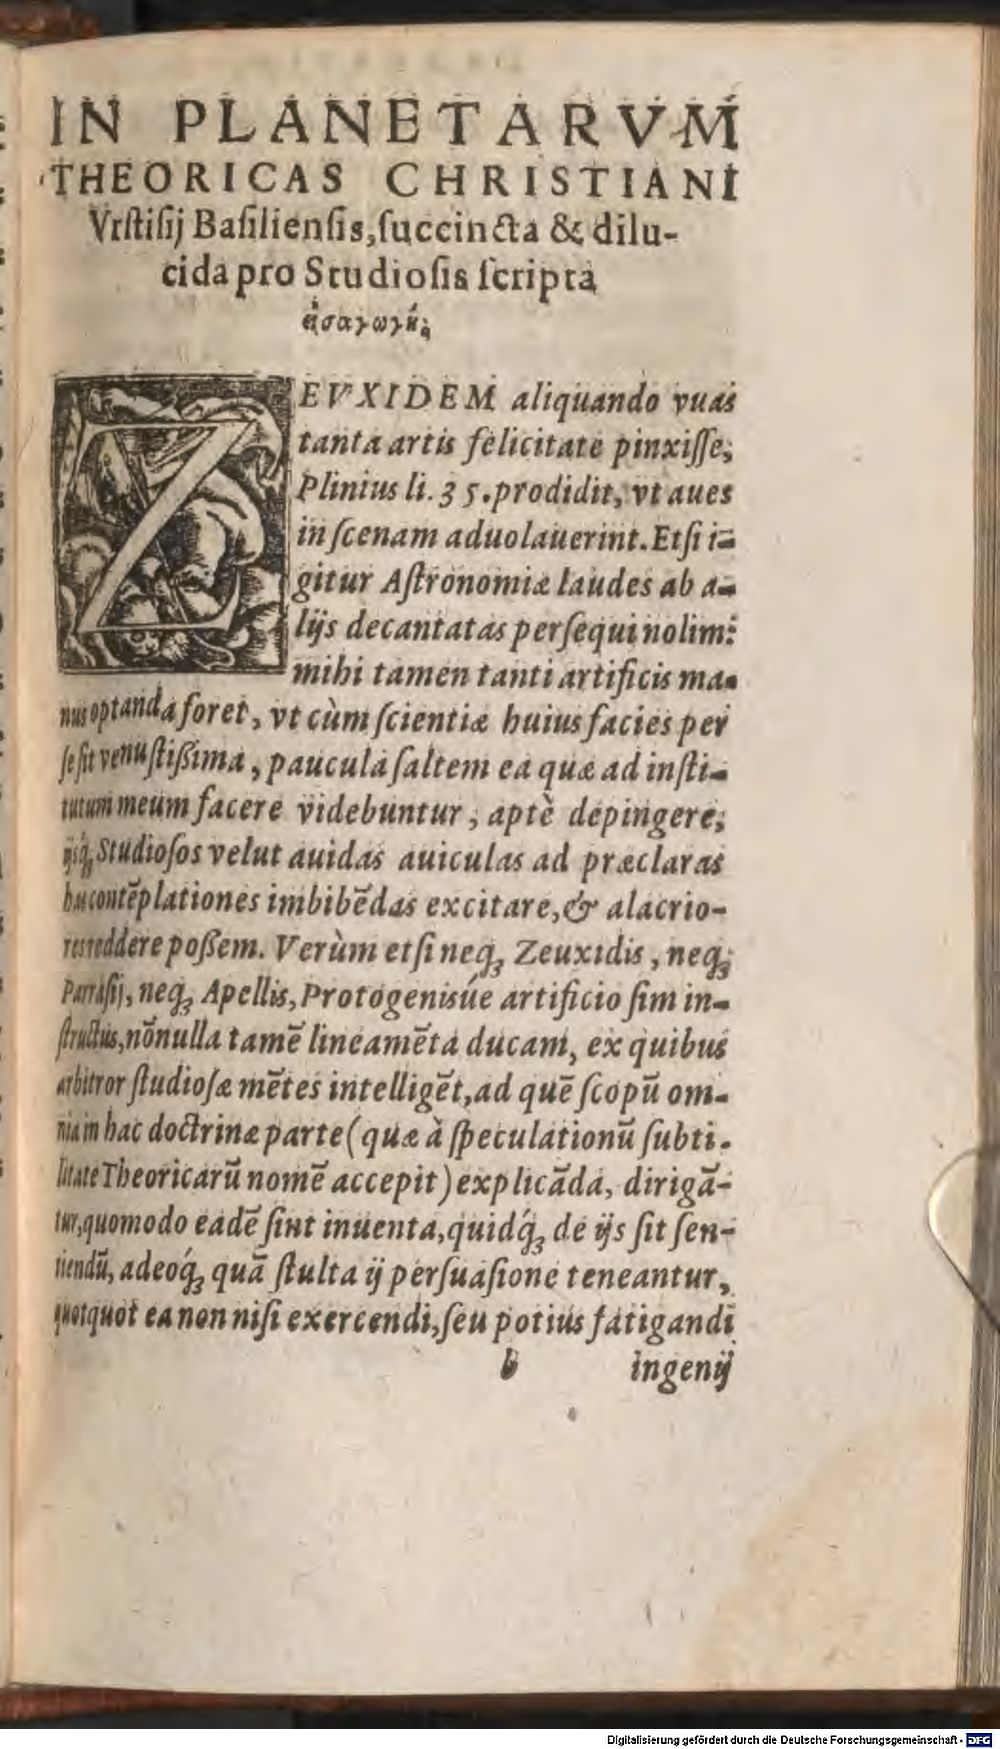 IN PLANETARVM
THEORICAS CHRISTIANI
Vrstisij Basiliensis, succincta & dilu-
cida pro Studiosis scripta
εἰσαγωγή
ZEVXIDEM aliquando vuas
tanta artis felicitate pinxisse,
Plinius li. 35. prodidit, vt aues
in scenam aduolauerint. Etsi i-
gitur Astronomiæ laudes ab a-
lijs decantatas persequi nolim:
mihi tamen tanti artificis ma-
nus optanda foret, vt cùm scientiæ huius facies per
se sit venustißima, paucula saltem ea quæ ad insti-
tutum meum facere videbuntur, aptè depingere,
ijsq́ꝫ Studiosos velut auidas auiculas ad præclaras
hascontẽplationes imbibẽdas excitare, & alacrio-
res reddere poßem. Verùm etsi neqꝫ Zeuxidis, neqꝫ
Parrasij, neqꝫ Apellis, Protogenisúe artificio sim in-
structus, nõnulla tamẽ lineamẽta ducam, ex quibus
arbitror studiosæ mẽtes intelligẽt, ad quẽ scopũ om-
nia in hac doctrinæ parte (quæ à speculationũ subti-
litate Theoricarũ nomẽ accepit) explicãda, dirigã-
tur, quomodo eadẽ sint inuenta, quidq́ꝫ de ijs sit sen-
tiendũ, adeoq́ꝫ quã stulta ij persuasione teneantur,
quotquot ea non nisi exercendi, seu potius fatigandi
b ingenij
Digitalisierung gefördert durch die Deutsche Forschungsgemeinschaft - DFG